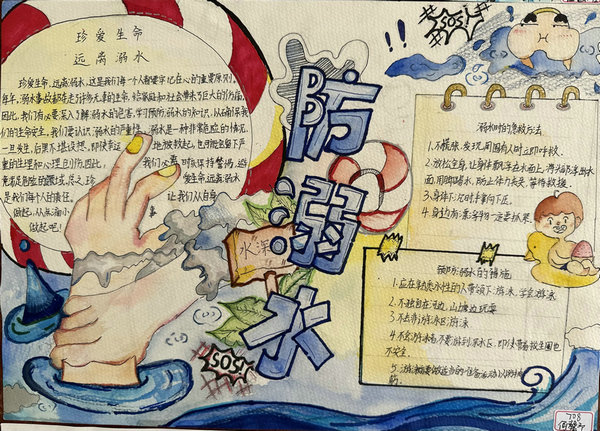 珍爱生命
远离溺水
珍爱生命,远离溺水,这是我们每个人都要牢记在心的重要原则。
年年,溺水事故都夺走了许多无辜的生命,给家庭和社会带来了巨大的伤痛。
因此,我们有必要深入了解溺水的危害,学习预防溺水的知识,从而确保我
们的生命安全。我们要认识溺水的严重性。溺水是一种非常危险的情况,
一旦发生,后果不堪设想。即使幸运地被救起,也可能会留下严
重的生理和心理创伤。因此,我们必须时刻保持警惕,
是我们每个人的责任。让我们从自身
做起,从点滴小
做起吧!
防溺水
水深
SOS!
!!
SOS!
溺水时的急救方法
1.不慌张,发现周围有人时立即呼救。
2.放松全身,让身体飘浮在水面上,将头部浮出水
面,用脚踢水,防止体力丧失,等待救援。
3.身体下沉时手掌向下压。
4.身边有漂浮物一定要抓紧。
预防溺水的措施
1.应在熟悉水性的人带领下游泳,学会游泳
2.不独自在河边、山塘边玩耍
3.不去非游泳区游泳
4.不会游泳者不要游到深水区,即使带着救生圈也
不安全。
708